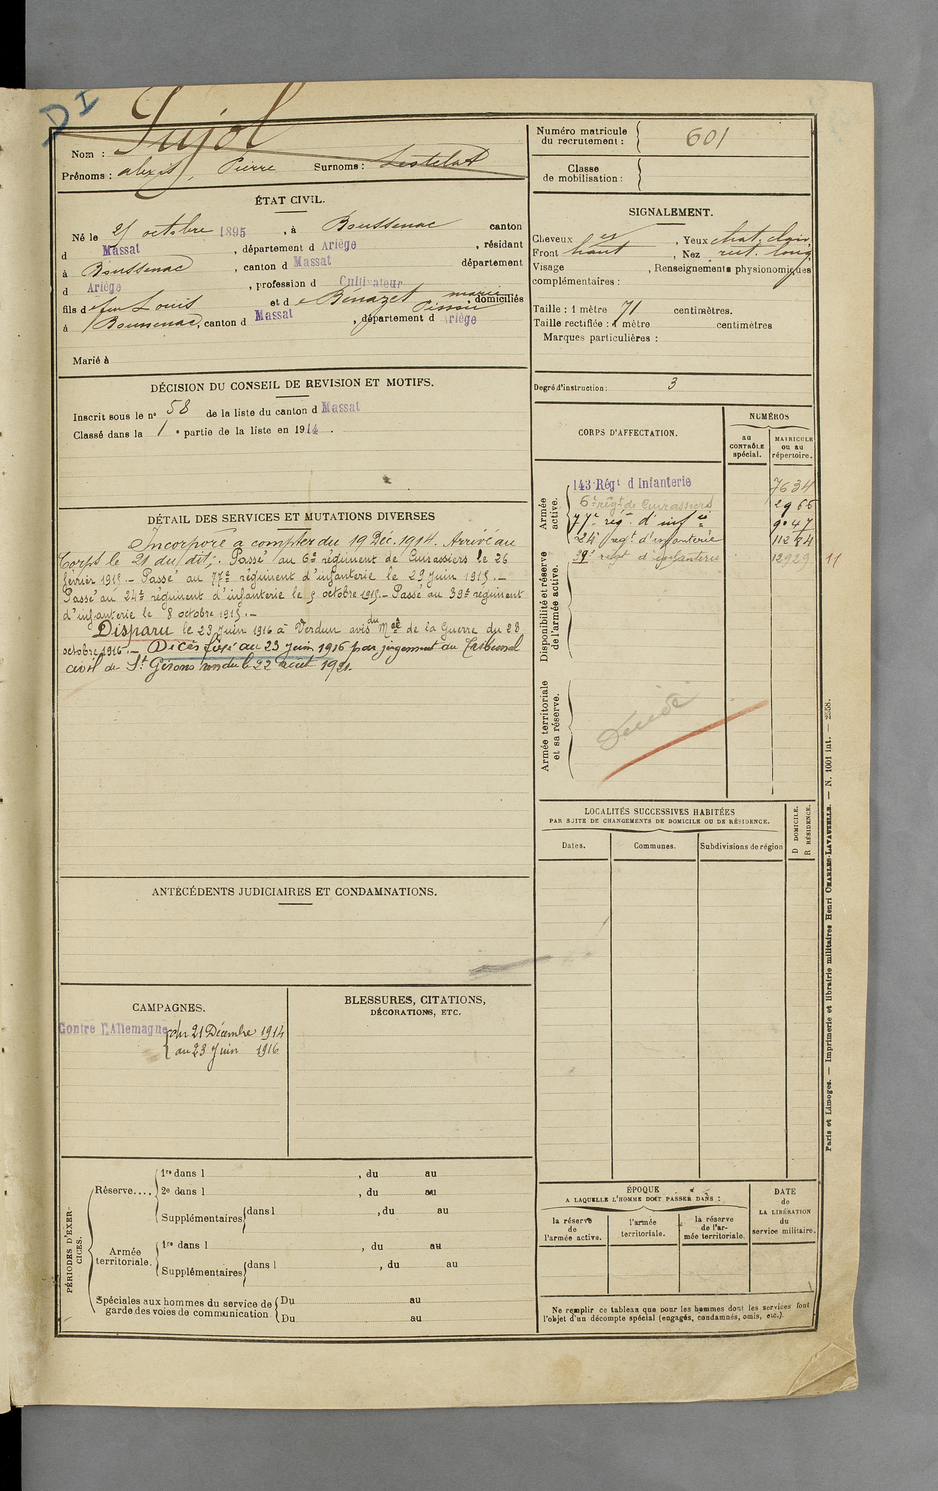 DI
Nom : Pujol
Prénoms : alexis, Pierre Surnoms :
Numéro matricule du recrutement : 601
Classe de mobilisation :
ÉTAT CIVIL.
Né le 25 octobre 1895, à Boussenac canton
d Massat, département d Ariège, résidant
à Boussenac, canton d Massat département
d Ariège, profession d Cultivateur
fils d e feu Louis et d e Benazet marie, domiciliés
à Boussenac, canton d Massat, département d Ariège
Marié à
SIGNALEMENT.
Cheveux , Yeux chat. clair
Front haut, Nez rect. long
Visage , Renseignements physionomiques
complémentaires :
Taille : 1 mètre 71 centimètres.
Taille rectifiée : 1 mètre centimètres
Marques particulières :
Degré d'instruction : 3
DÉCISION DU CONSEIL DE REVISION ET MOTIFS.
Inscrit sous le n° 58 de la liste du canton d Massat
Classé dans la 1 e partie de la liste en 1914.
DÉTAIL DES SERVICES ET MUTATIONS DIVERSES
Incorporé à compter du 19 Déc. 1914. Arrivé au
Corps le 21 du dit; Passé au 6e régiment de Cuirassiers le 26
février 1915.- Passé au 77e régiment d'infanterie le 29 Juin 1915.-
Passé au 24e régiment d'infanterie le 5 octobre 1915.- Passé au 39e régiment
d'infanterie le 8 octobre 1915.-
Disparu le 23 Juin 1916 à Verdun avis du Mel de la Guerre du 28
octobre 1916.- Décès fixé au 23 juin 1916 par jugement du Tribunal
civil de St Girons rendu le 22 août 1921.
CORPS D'AFFECTATION.
NUMÉROS
au CONTRÔLE spécial.
MATRICULE ou au répertoire.
Armée active.
143 Régt d Infanterie 7634
6e régt de Cuirassiers 2966
77e rég. d'infie 9047
24e rég. d'infanterie 11274
39e régt d'infanterie 12929 11
Disponibilité et réserve de l'armée active.
Armée territoriale et sa réserve.
Décédé
LOCALITÉS SUCCESSIVES HABITÉES
PAR SUITE DE CHANGEMENTS DE DOMICILE OU DE RÉSIDENCE.
Dates. Communes. Subdivisions de région
D DOMICILE.
R RÉSIDENCE.
ANTÉCÉDENTS JUDICIAIRES ET CONDAMNATIONS.
CAMPAGNES.
Contre l'Allemagne du 21 Décembre 1914
au 23 Juin 1916
BLESSURES, CITATIONS,
DÉCORATIONS, ETC.
PÉRIODES D'EXERCICES.
Réserve.... 1re dans l , du au
2e dans l , du au
Supplémentaires dans l , du au
Armée territoriale. 1re dans l , du au
Supplémentaires dans l , du au
Spéciales aux hommes du service de garde des voies de communication
Du au
Du au
ÉPOQUE
A LAQUELLE L'HOMME DOIT PASSER DANS :
la réserve de l'armée active.
l'armée territoriale.
la réserve de l'armée territoriale.
DATE de LA LIBÉRATION du service militaire.
Ne remplir ce tableau que pour les hommes dont les services font
l'objet d'un décompte spécial (engagés, condamnés, omis, etc.).
Paris et Limoges. — Imprimerie et librairie militaires Henri CHARLES-LAVAUZELLE. — N. 1001 int. — 2558.